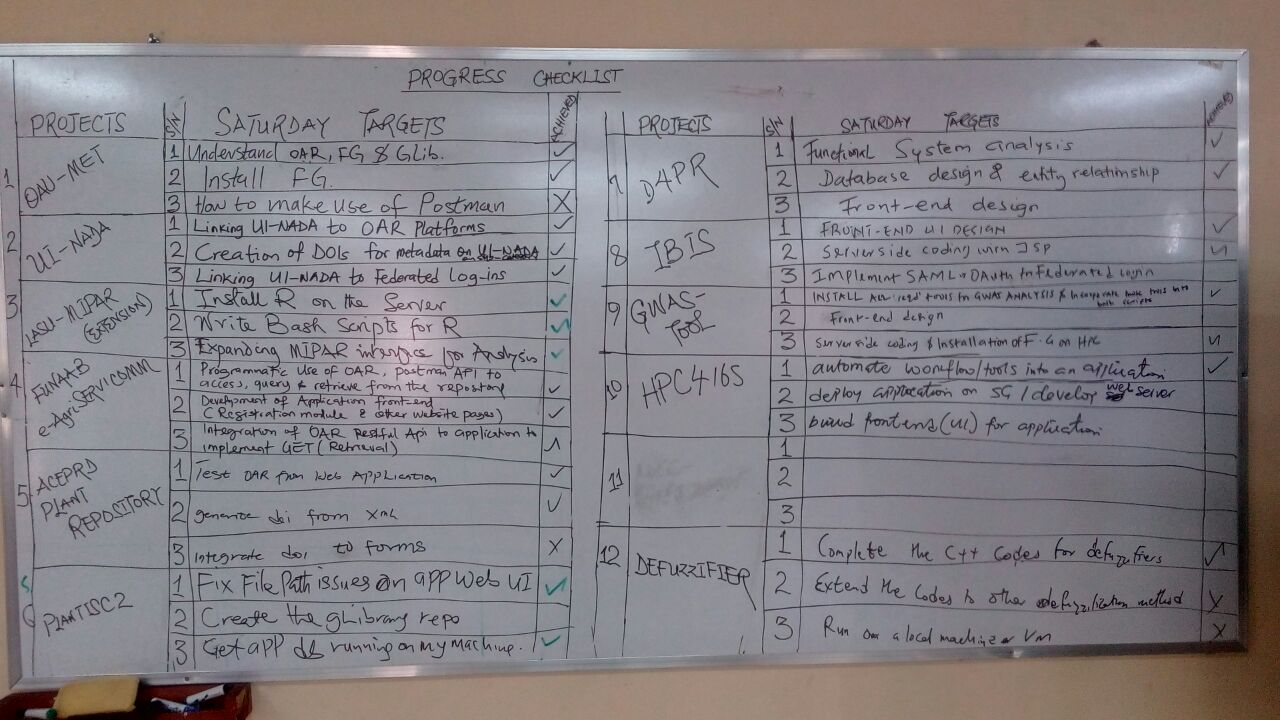 PROGRESS CHECKLIST
PROJECTS S/N SATURDAY TARGETS ACHIEVED
1 OAU-MET
1 Understand OAR, FG & GLib. ✓
2 Install FG. ✓
3 How to make use of Postman X
2 UI-NADA
1 Linking UI-NADA to OAR Platforms ✓
2 Creation of DOIs for metadata on UI-NADA ✓
3 Linking UI-NADA to Federated Log-ins ✓
3 LASU-MIPAR
(EXTENSION)
1 Install R on the Server ✓
2 Write Bash Scripts for R ✓
3 Expanding MIPAR interface for Analysis ✓
4 FUNAAB
e-Agri SERVICOMM
1 Programmatic Use of OAR, postman API to
access, query & retrieve from the repository ✓
2 Development of Application front-end
(Registration module & other website pages) ✓
3 Integration of OAR Restful Api to application to
implement GET (Retrieval)
5 ACEPRD
PLANT
REPOSITORY
1 Test OAR from Web Application ✓
2 generate doi from xml ✓
3 integrate doi to forms X
6 PLANTISC2
1 Fix File Path issues on app Web UI ✓
2 Create the gLibrary repo
3 Get app running on my machine. ✓
PROJECTS S/N SATURDAY TARGETS ACHIEVED
7 DAPR
1 Functional System analysis ✓
2 Database design & entity relationship ✓
3 Front-end design
8 IBIS
1 FRONT-END UI DESIGN ✓
2 Server side coding with JSP ✓
3 Implement SAML OAuth for Federated Login
9 GWAS-
TOOL
1 INSTALL ALL tools for GWAS ANALYSIS & Incorporate tools into
bash scripts ✓
2 Front-end design
3 server side coding & Installation of F.G on HPC ✓
10 HPC416S
1 automate workflow/tools into an application ✓
2 deploy application on SG / develop web server
3 build frontend (UI) for application
11
1
2
3
12 DEFUZZIFIER
1 Complete the C++ Codes for defuzzifiers ✓
2 Extend the Codes to other defuzzification method X
3 Run on a local machine or Vm X